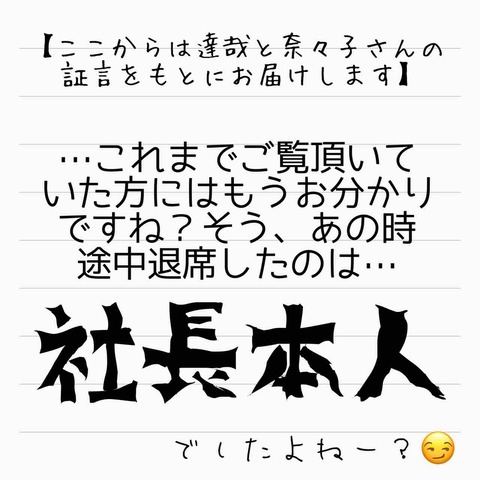 【ここからは達哉と奈々子さんの
証言をもとにお届けします】
…これまでご覧頂いて
いた方にはもうお分かり
ですね？そう、あの時
途中退席したのは…
社長本人
でしたよねー？😏